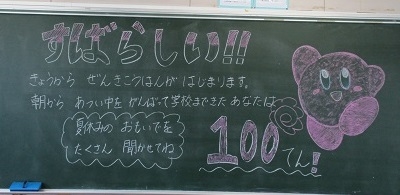 すばらしい!!
きょうから ぜんきこうはんが はじまります。
朝から あつい中を がんばって学校まできた あなたは
夏休みの おもいでを
たくさん 聞かせてね
100てん!